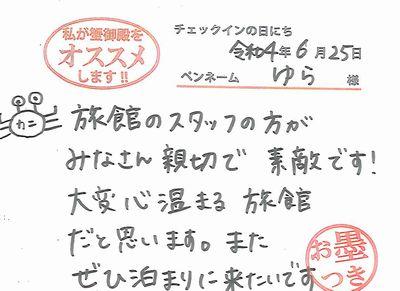 私が蟹御殿を
オススメ
します!!
チェックインの日にち
令和4年6月25日
ペンネーム ゆら 様
カニ
旅館のスタッフの方が
みなさん親切で 素敵です!
大変心温まる 旅館
だと思います。また
ぜひ泊まりに来たいです
お墨
つき